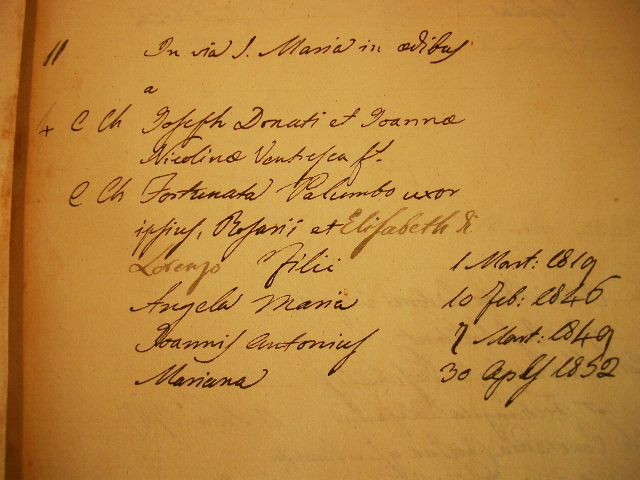 11 In via S. Maria in ædibus
a
+ C Ch Joseph Donati et Joannæ
Nicolinæ Ventresca f.
C Ch Fortunata Palumbo uxor
ipsius, Rosarii et Elisabeth
Lorenzo Filii 1 Mart: 1819
Angela Maria 10 Feb: 1846
Joannis Antonius 7 Mart: 1849
Mariana 30 Aplis 1852